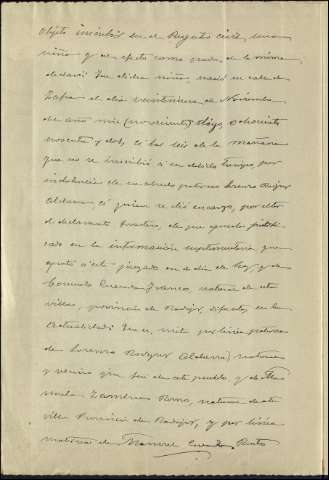 objeto inscribir en el Registro civil, una
niña y al efecto como padre de la misma
declaró: Que dicha niña nació en calle de
Zafra el día veintinueve de Noviembre
del año mil (novecientos) digo, ochocientos
noventa y dos, a las seis de la mañana
que no se inscribió a su debido tiempo, por
indolencia de su abuelo paterno Lorenzo Rodríguez
Aldana a quien se dio encargo, por estar
el declarante fuera, de que quedó justifi
cado en la información supletoria que
ante este juzgado en el día de hoy, y de
Consuelo Cuenda Franco, natural de esta
villa, provincia de Badajoz, difunta en la
actualidad: Que es, nieta por línea paterna
de Lorenzo Rodríguez Aldana, natural
y vecino que fue de este pueblo, y de Ma
nuela Zambrano Romo, natural de esta
villa Provincia de Badajoz, y por línea
materna de Manuel Cuenda Pinto